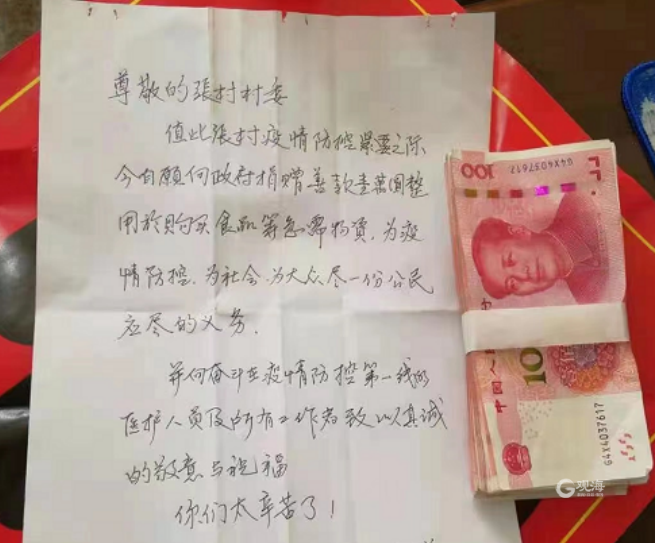 尊敬的張村村委
值此張村疫情防控紧要之际
今自愿向政府捐赠善款壹萬圓整
用於购买食品等急需物資，为疫
情防控，为社会，为大众尽一份公民
应尽的义务．
并向奋斗在疫情防控第一线的
医护人员及所有工作者致以真诚
的敬意与祝福
你们太辛苦了！
100
G4X4037617
中国人民
10
G4X4037617
观海